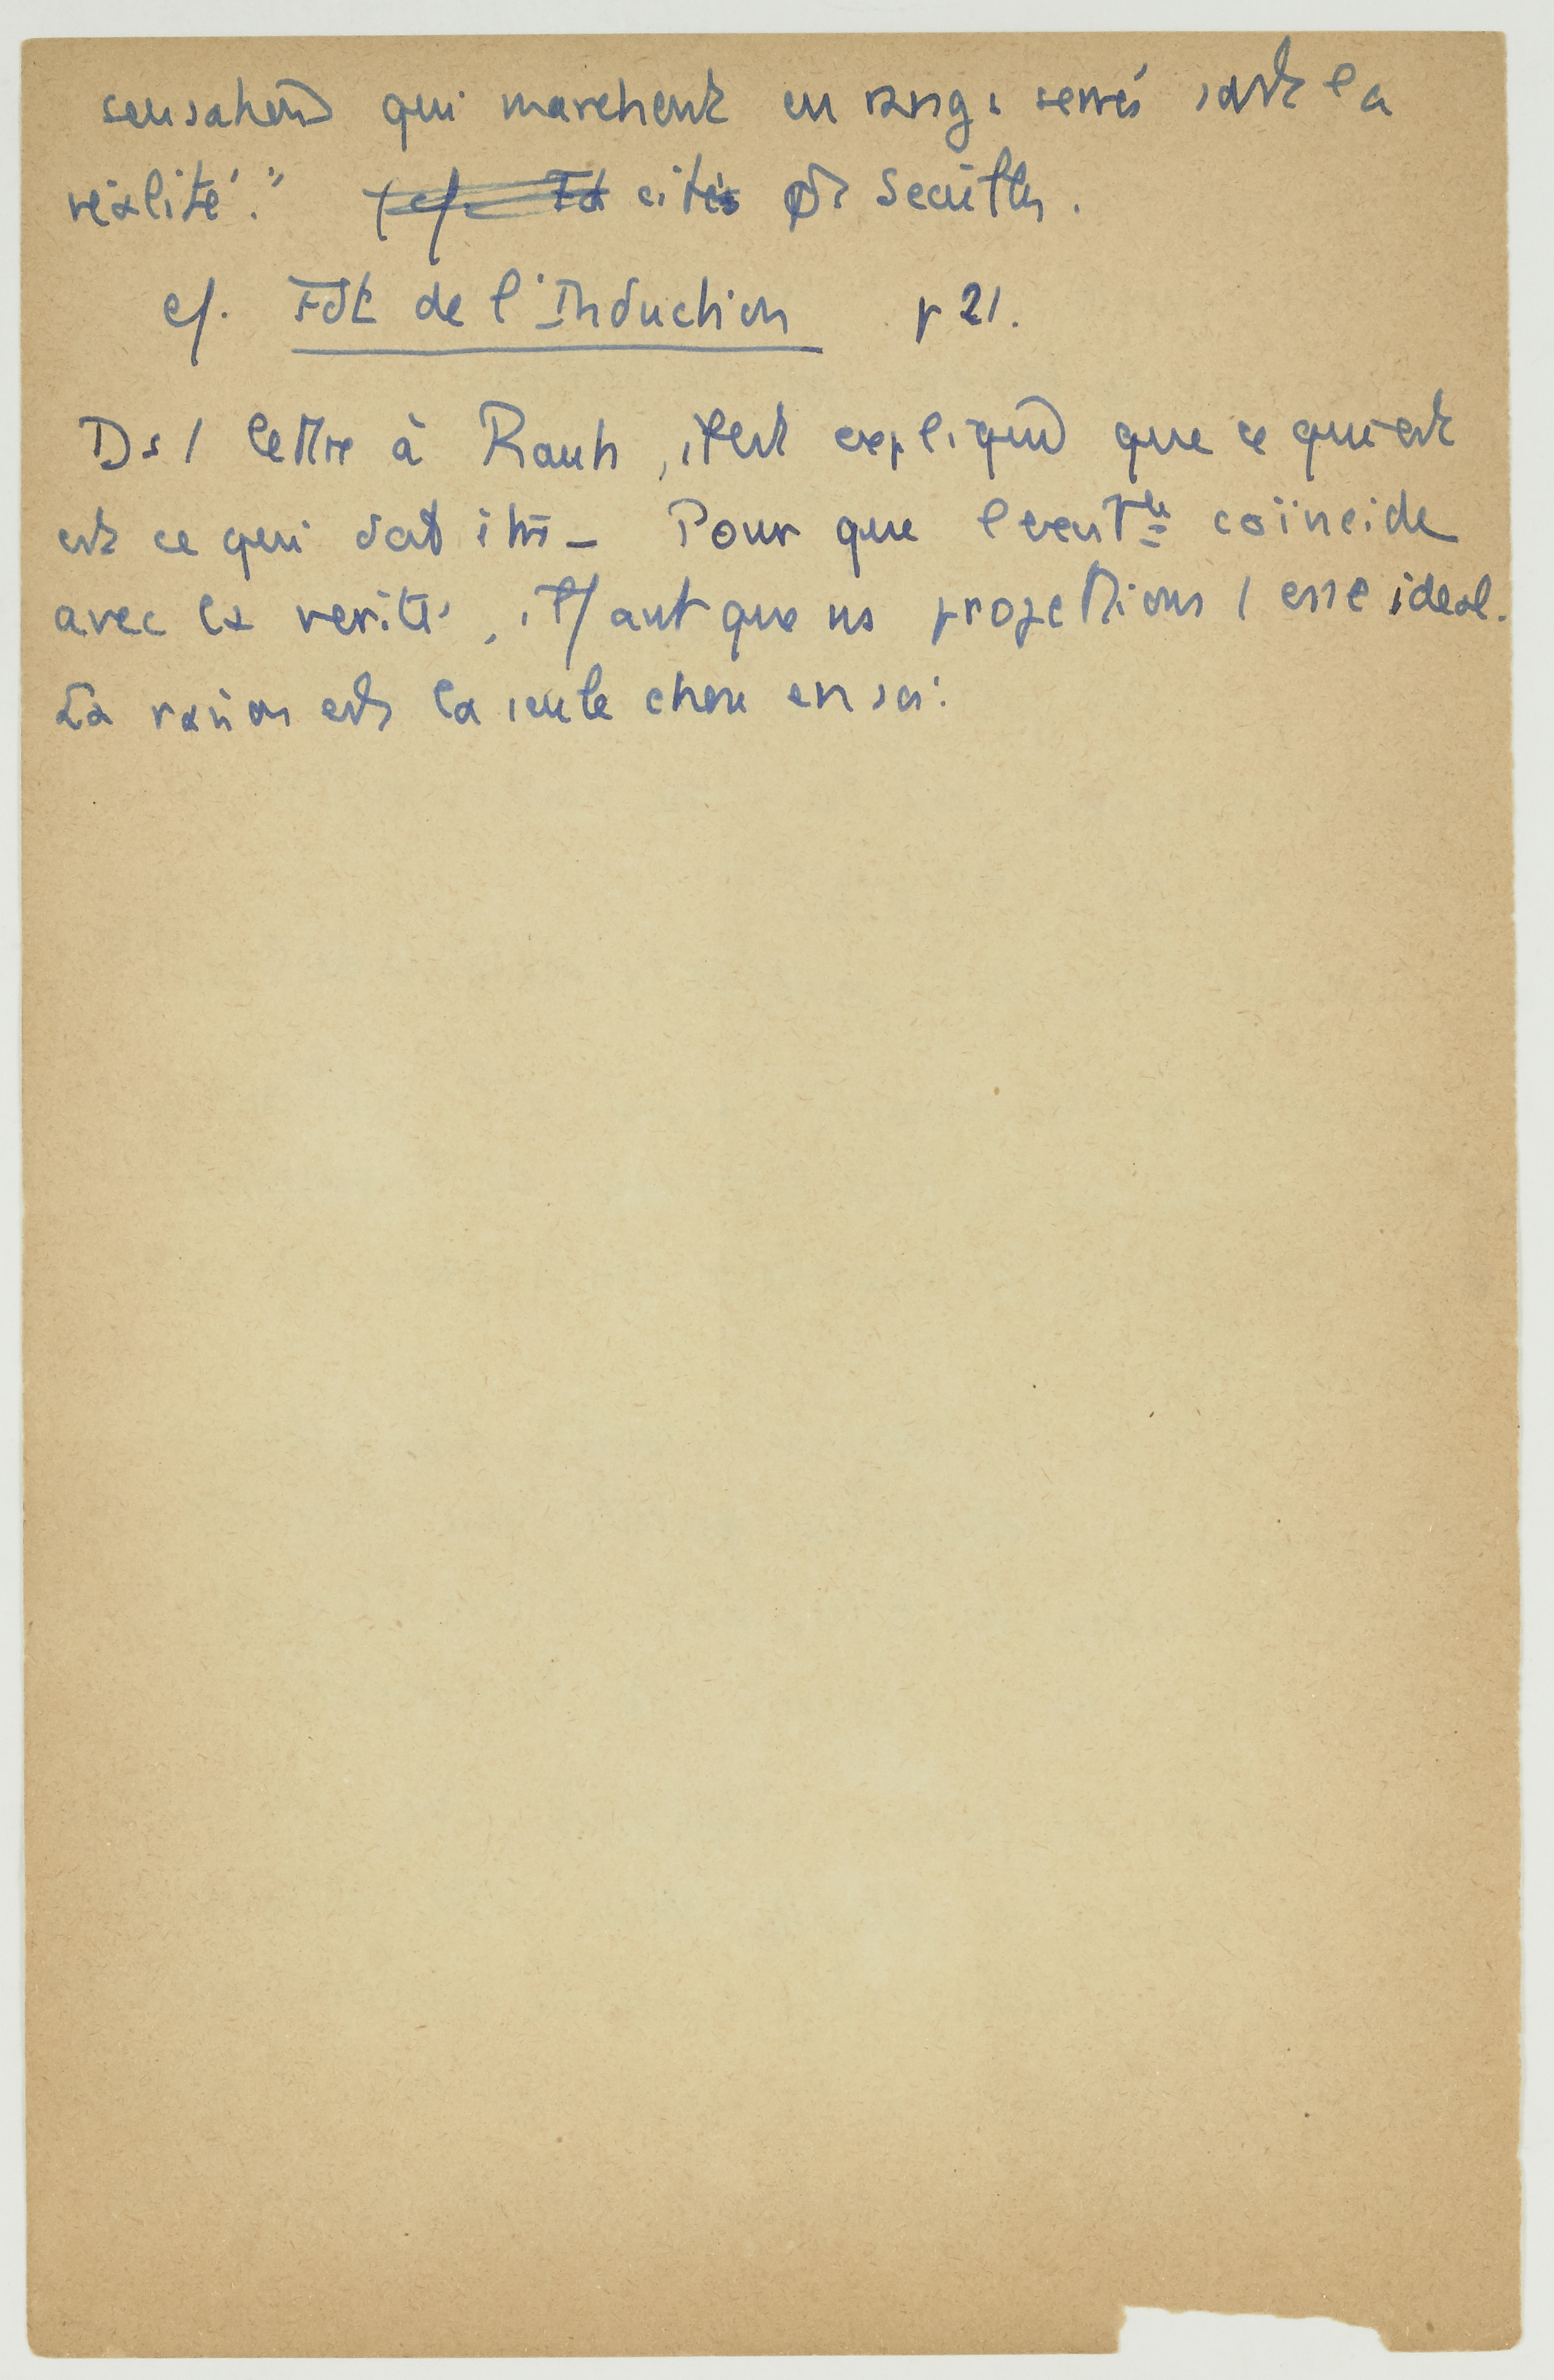 sensations qui marchent en rangs serrés sont la
réalité." cité par Séailles.
cf. Fdt de l'Induction p 21.
Ds 1 lettre à Rauh, il est expliqué que ce qui est
est ce qui doit être – Pour que coïncide
avec la vérité, il faut que ns projettions 1 esse ideal.
La raison est la seule chose en soi.